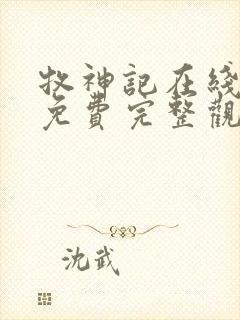 牧神記在綫
免費完整觀
沈武